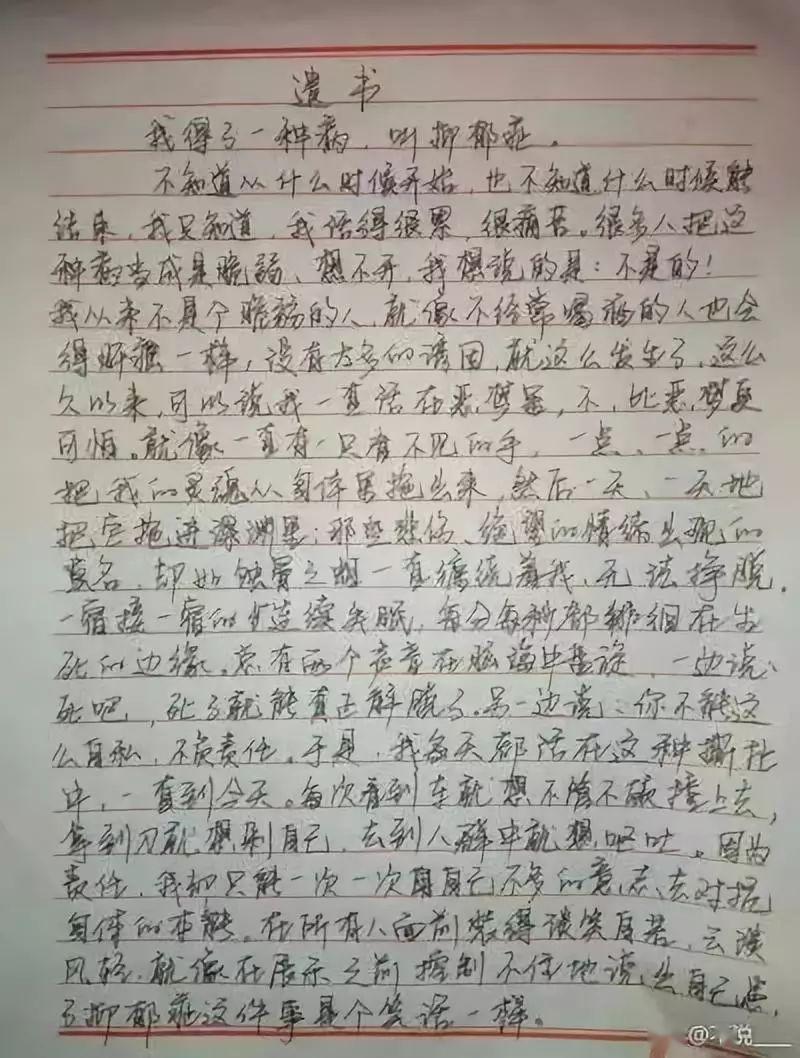 遗书
我得了一种病，叫抑郁症。
不知道从什么时候开始，也不知道什么时候能
结束，我只知道，我活得很累，很痛苦。很多人把这
种病当成是脆弱、想不开，我想说的是：不是的！
我从来不是个脆弱的人，就像不经常喝酒的人也会
得肝癌一样，没有太多的诱因，就这么发生了，这么
久以来，可以说我一直活在恶梦里，不，比恶梦更
可怕。就像一直有一只看不见的手，一点、一点的
把我的灵魂从身体里拖出来，然后一天、一天地
把它拖进深渊里；那些悲伤、绝望的情绪出现的
莫名，却如蚀骨之蛆一直缠绕着我，无法挣脱，
一宿接一宿的连续失眠，每分每秒都徘徊在生
死的边缘。总有两个声音在脑海中盘旋，一边说：
死吧，死了就能真正解脱了。另一边说：你不能这
么自私，不负责任。于是，我每天都活在这种撕扯
中，一直到今天。每次看到车就想不管不顾撞上去，
拿到刀就想剁自己，去到人群中就想呕吐。因为
责任，我却只能一次一次用自己不多的意志去对抗
身体的本能。在所有人面前装得谈笑自若，云淡
风轻，就像在展示之前控制不住地说出自己患
了抑郁症这件事是个笑话一样。